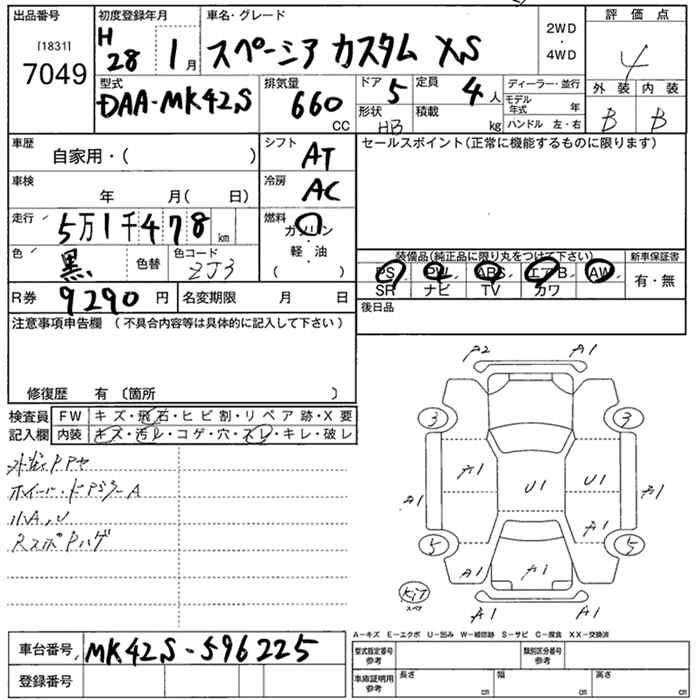 出品番号 初度登録年月 車名・グレード 2WD 評価点
[1831] H
7049 28 1月 スペーシア カスタム XS ・ 4WD 4
型式 排気量 ドア 5 定員 4人 ディーラー・並行 外装 内装
DAA-MK42S 660 CC 形状 HB 積載 kg モデル年式 年 B B
ハンドル 左・右
車歴 シフト セールスポイント(正常に機能するものに限ります)
自家用・( ) AT
車検 冷房
年 月( 日) AC
走行 5万1千478km 燃料
ガソリン
・
軽油
( )
色 黒 色替 色コード ZJ3
装備品(純正品に限り丸をつけて下さい) 新車保証書
PS PW ABS エアB AW 有・無
SR ナビ TV カワ
R券 9290円 名変期限 月 日 後日品
注意事項申告欄 (不具合内容等は具体的に記入して下さい)
修復歴 有 〔箇所 〕
検査員 FW キズ・飛石・ヒビ割・リペア跡・X要
記入欄 内装 キズ・汚レ・コゲ・穴・スレ・キレ・破レ
ホイール・ドアミラーA
小A,U
RスポPハゲ
A2 A1
3 3
A1 U1 U1
A1 A1
A1
5 5
A1 A1 A1
KIT
スペア
A1 A1
A-キズ E-エクボ U-凹み W-補修跡 S-サビ C-腐食 XX-交換済
車台番号 MK42S-596225
型式指定番号 参考 類別区分番号 参考
登録番号
車庫証明用 参考 長さ cm 幅 cm 高さ cm